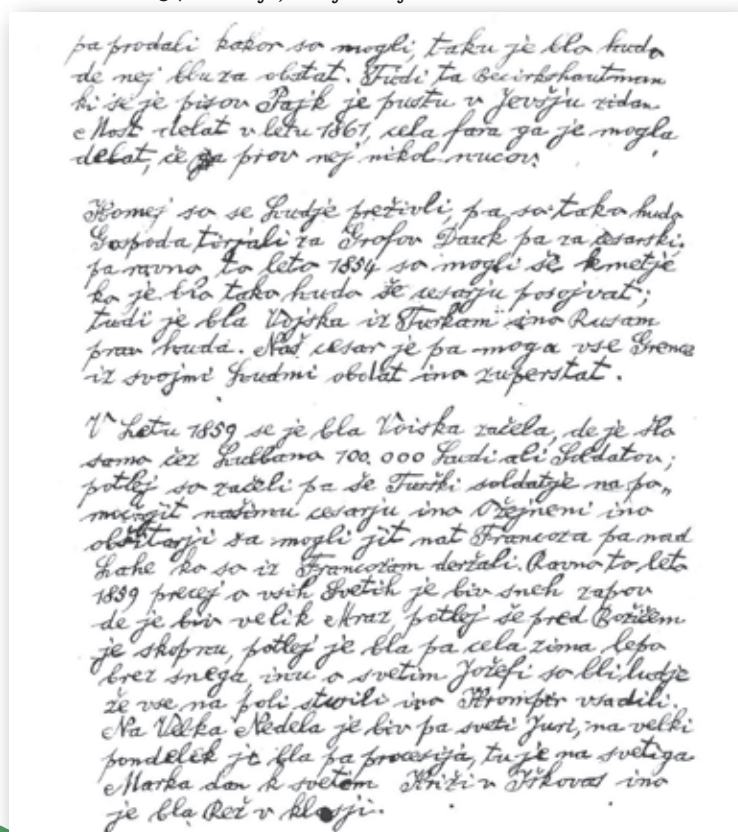 pa prodali kakor so mogli, taku je blo hudo
de nej blu za obstat. Tudi ta Becirkshautman
ki se je pisov Pajk je pustu v Jevšju zidan
Most delat v letu 1867, cela fara ga je mogla
delat, če ga prov nej nikol nucov.
Komej so se Ludje preživli, pa so tako hudo
Gospoda tirjali za Grofov Dauk pa za cesarski,
pa ravno to leto 1854 so mogli še kmetje
ko je blo tako hudo še cesarju posojvat;
tudi je bla Vojska iz Turkam ino Rusam
prav huda. Naš cesar je pa moga vse Grence
iz svojmi Ludmi obdat ino zuperstat.
V Letu 1859 se je bla Voiska začela, de je šlo
samo čez Lublano 700.000 Ludi ali Soldatov;
potlej so začeli pa še Turški soldatje na po„
muč jit našimu cesarju ino Ožejneni ino
obštarji sa mogli jit nat Francoza pa nad
Lahe ko so iz Francozam deržali. Ravno to leto
1859 precej o vsih Svetih je biv sneh zapov
de je biv velik Mraz, potlej še pred Božičem
je skopneu, potlej je bla pa cela zima lepa
brez snega, inu o svetim Jožefi so bli ludje
že vse na poli sturili ino Krompir vsadili.
Na Velka Nedela je biv pa sveti Juri, na velki
pondelek je bla pa procesija, tu je na svetiga
Marka dan k svetem Križi v Iškovas ino
je bla Rež v klasji.